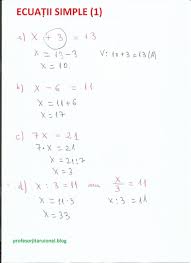 ECUAȚII SIMPLE (1)
a) x + 3 = 13
x = 13 - 3 V: 10 + 3 = 13 (A)
x = 10.
b) x - 6 = 11
x = 11 + 6
x = 17
c) 7x = 21
7 · x = 21
x = 21 : 7
x = 3
d) x : 3 = 11 sau x/3 = 11
x = 11 · 3 x : 3 = 11
x = 33
profesorjitaruionel.blog